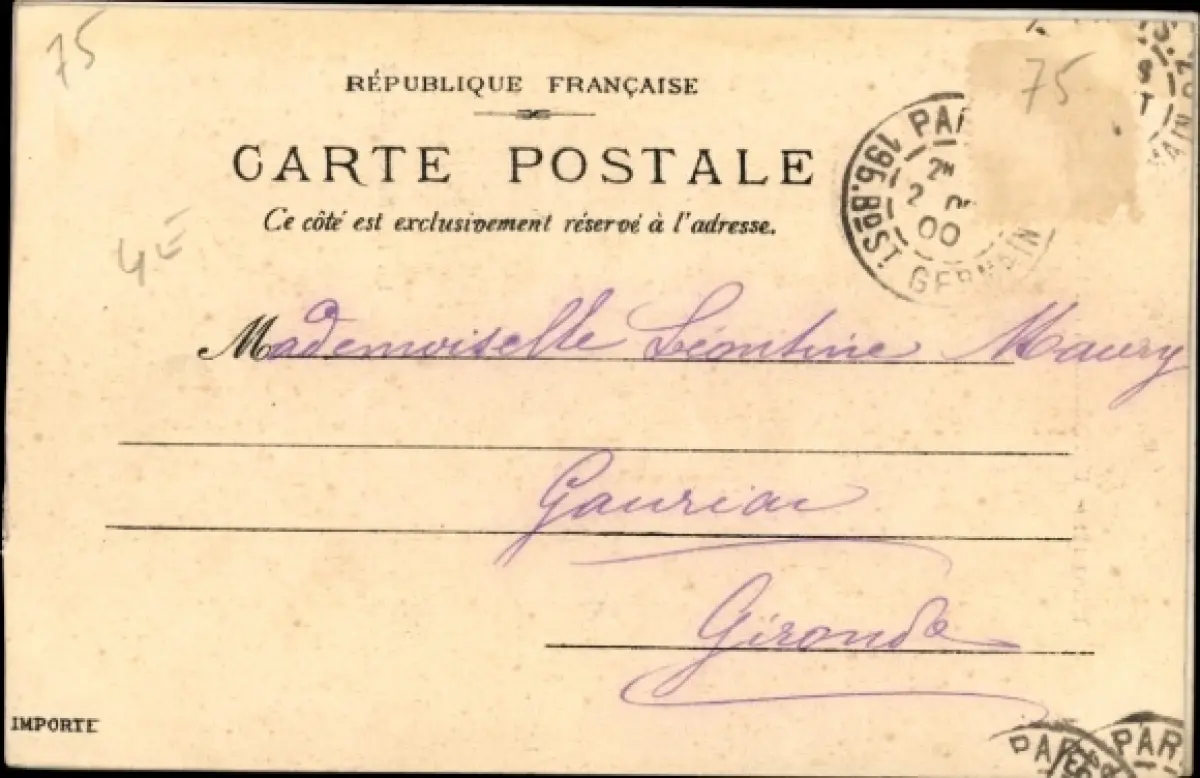 75
RÉPUBLIQUE FRANÇAISE
75
CARTE POSTALE
PAR
195. Bd ST GERMAIN
2
00
Ce côté est exclusivement réservé à l'adresse.
4E
Mademoiselle Léontine Maury
Gauriac
Gironde
IMPORTE
PAR
PAR